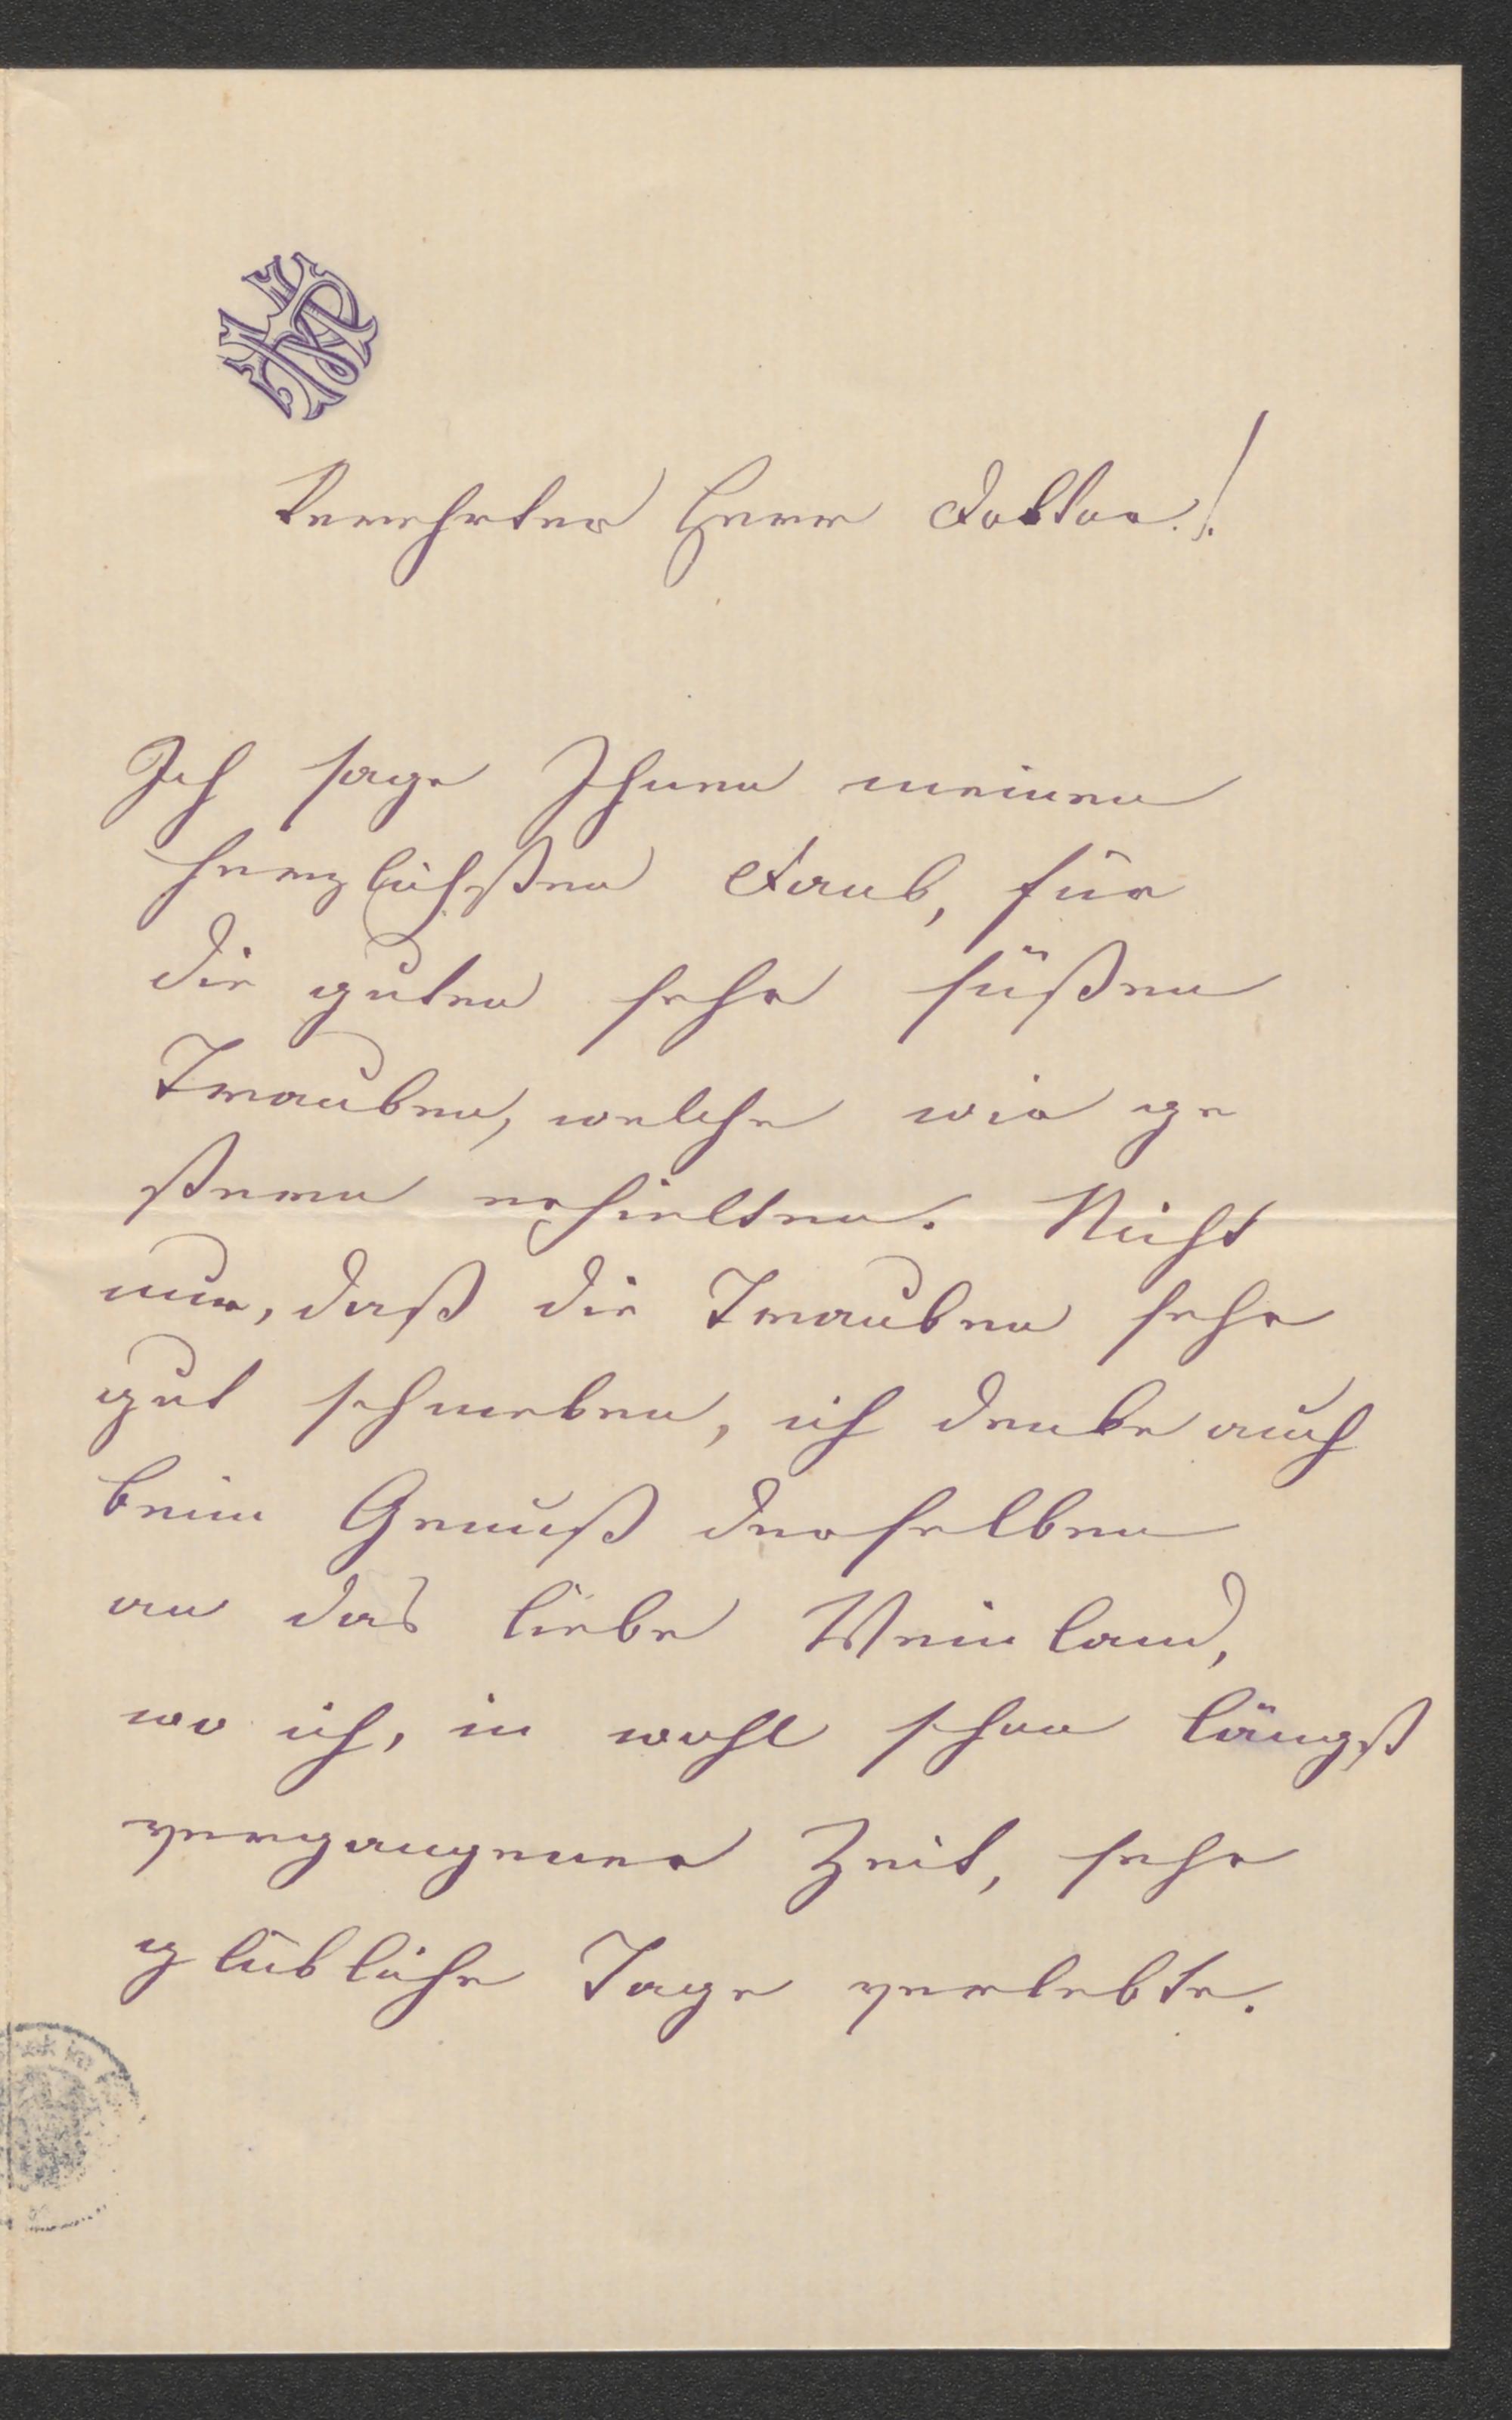 Verehrter Herr Doktor!
Ich sage Ihnen meinen
herzlichsten Dank, für
die guten sehr süßen
Trauben, welche wir ge
stern erhielten. Nicht
nur, daß die Trauben sehr
gut schmeken, ich denke auch
beim Genuß derselben
an das liebe Weinland,
wo ich, in wohl schon längst
vergangener Zeit, sehr
glükliche Tage verlebte.